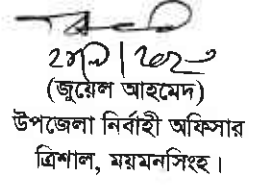 (জুয়েল আহমেদ)
উপজেলা নির্বাহী অফিসার
ত্রিশাল, ময়মনসিংহ।